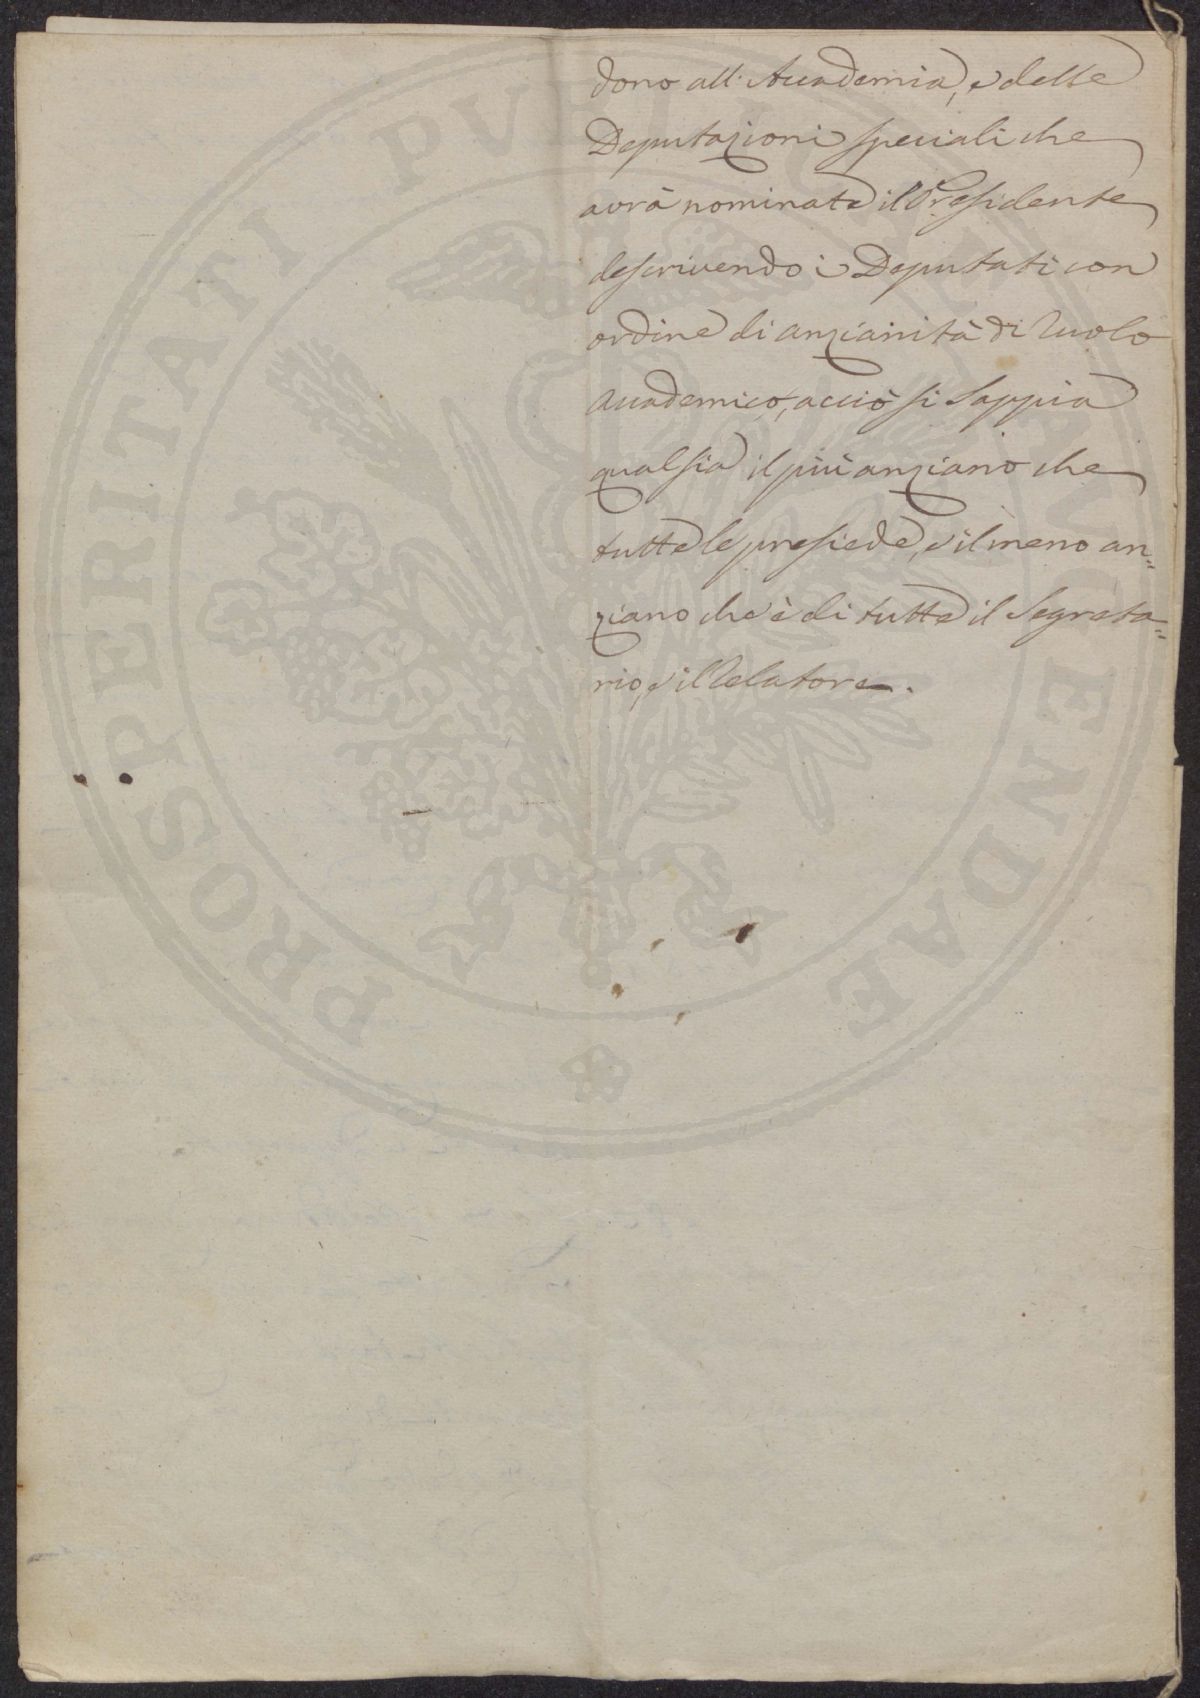 dono all'Accademia, e delle
Deputazioni speciali che
avrà nominate il Presidente
descrivendo i Deputati con
ordine di anzianità di Ruolo
accademico, acciò si sappia
qual sia il più anziano che
tutte le presiede, e il meno an=
ziano che è di tutte il Segreta=
rio, e il Relatore.
PROSPERITATI PVBLICAE AVGENDAE